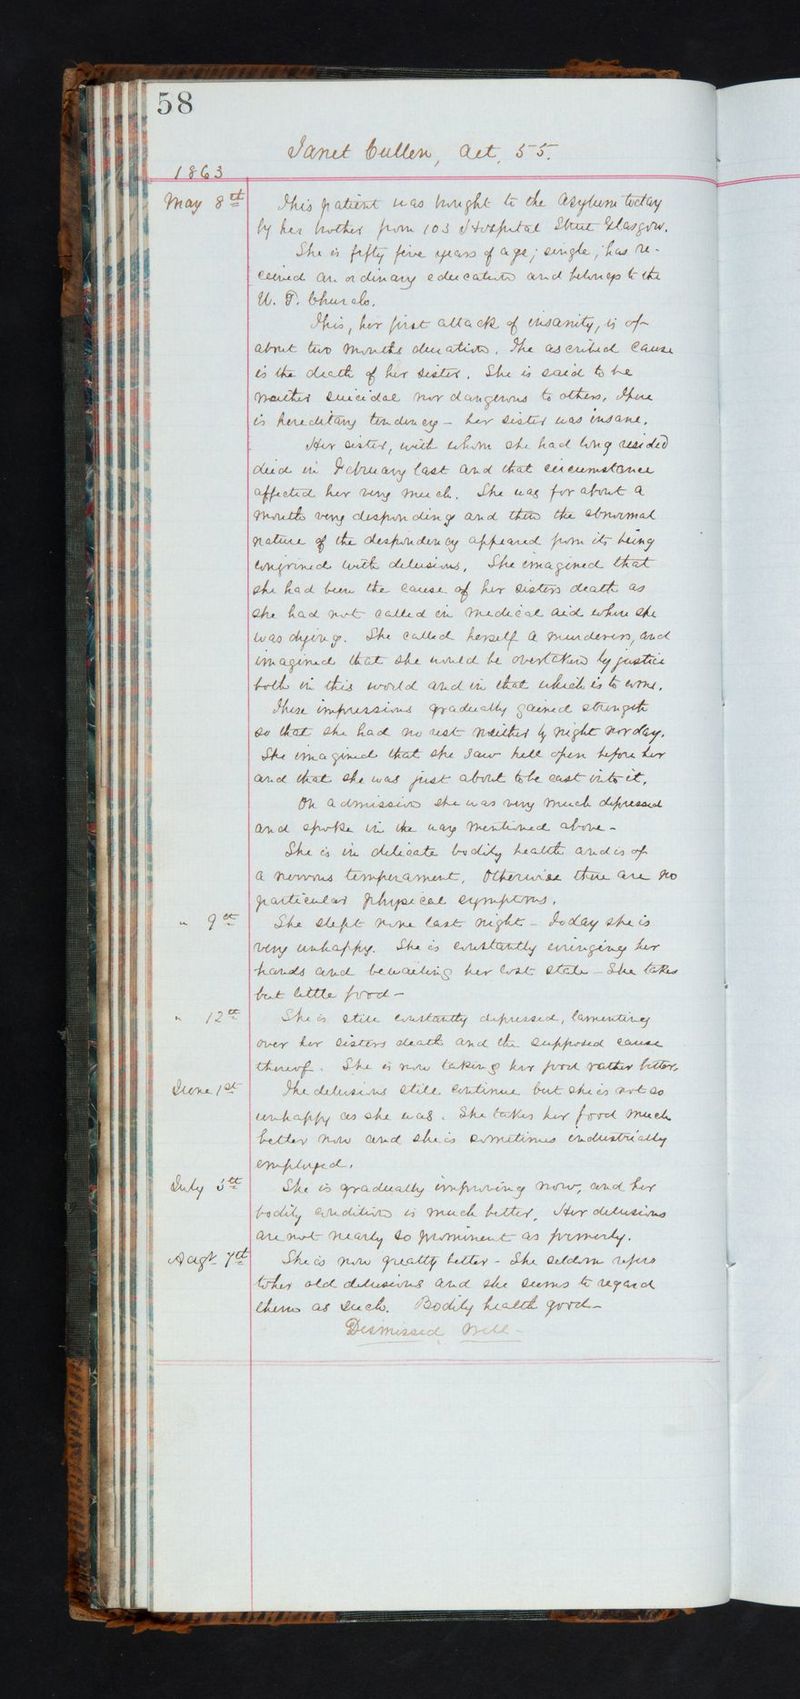 58
Janet Cullen, aet. 55.
1863
May 8th This patient was brought to the Asylum today
by her brother from 103 Hospital Street Glasgow.
She is fifty five years of age; single; has re-
ceived an ordinary education and belongs to the
U. P. Church.
This, her first attack of insanity, is of
about two months duration. The ascribed cause
is the death of her sister. She is said to be
neither suicidal nor dangerous to others. There
is hereditary tendency - her sister was insane.
Her sister, with whom she had long resided
died in February last and that circumstance
affected her very much. She was for about a
month very desponding and then the abnormal
nature of the despondency appeared from its being
conjoined with delusions. She imagined that
she had been the cause of her sisters death as
she had not called in medical aid when she
was dying. She called herself a murderess, and
imagined that she would be overtaken by justice
both in this world and in that which is to come.
These impressions gradually gained strength
so that she had no rest neither by night nor day.
She imagined that she saw hell open before her
and that she was just about to be cast into it.
On admission she was very much depressed
and spoke in the way mentioned above -
She is in delicate bodily health and is of
a nervous temperament. Otherwise there are no
particular physical symptoms.
" 9th She slept none last night - Today she is
very unhappy. She is constantly wringing her
hands and bewailing her lost state - She takes
but little food -
" 12th She is still constantly depressed, lamenting
over her sisters death and the supposed cause
thereof. She is now taking her food rather better.
June 1st The delusions still continue but she is not so
unhappy as she was. She takes her food much
better now and she is sometimes industrially
employed.
July 5th She is gradually improving now, and her
bodily condition is much better. Her delusions
are not nearly so prominent as formerly.
Augt 7th She is now greatly better - She seldom refers
to her old delusions and she seems to regard
them as such. Bodily health good -
Dismissed Well -